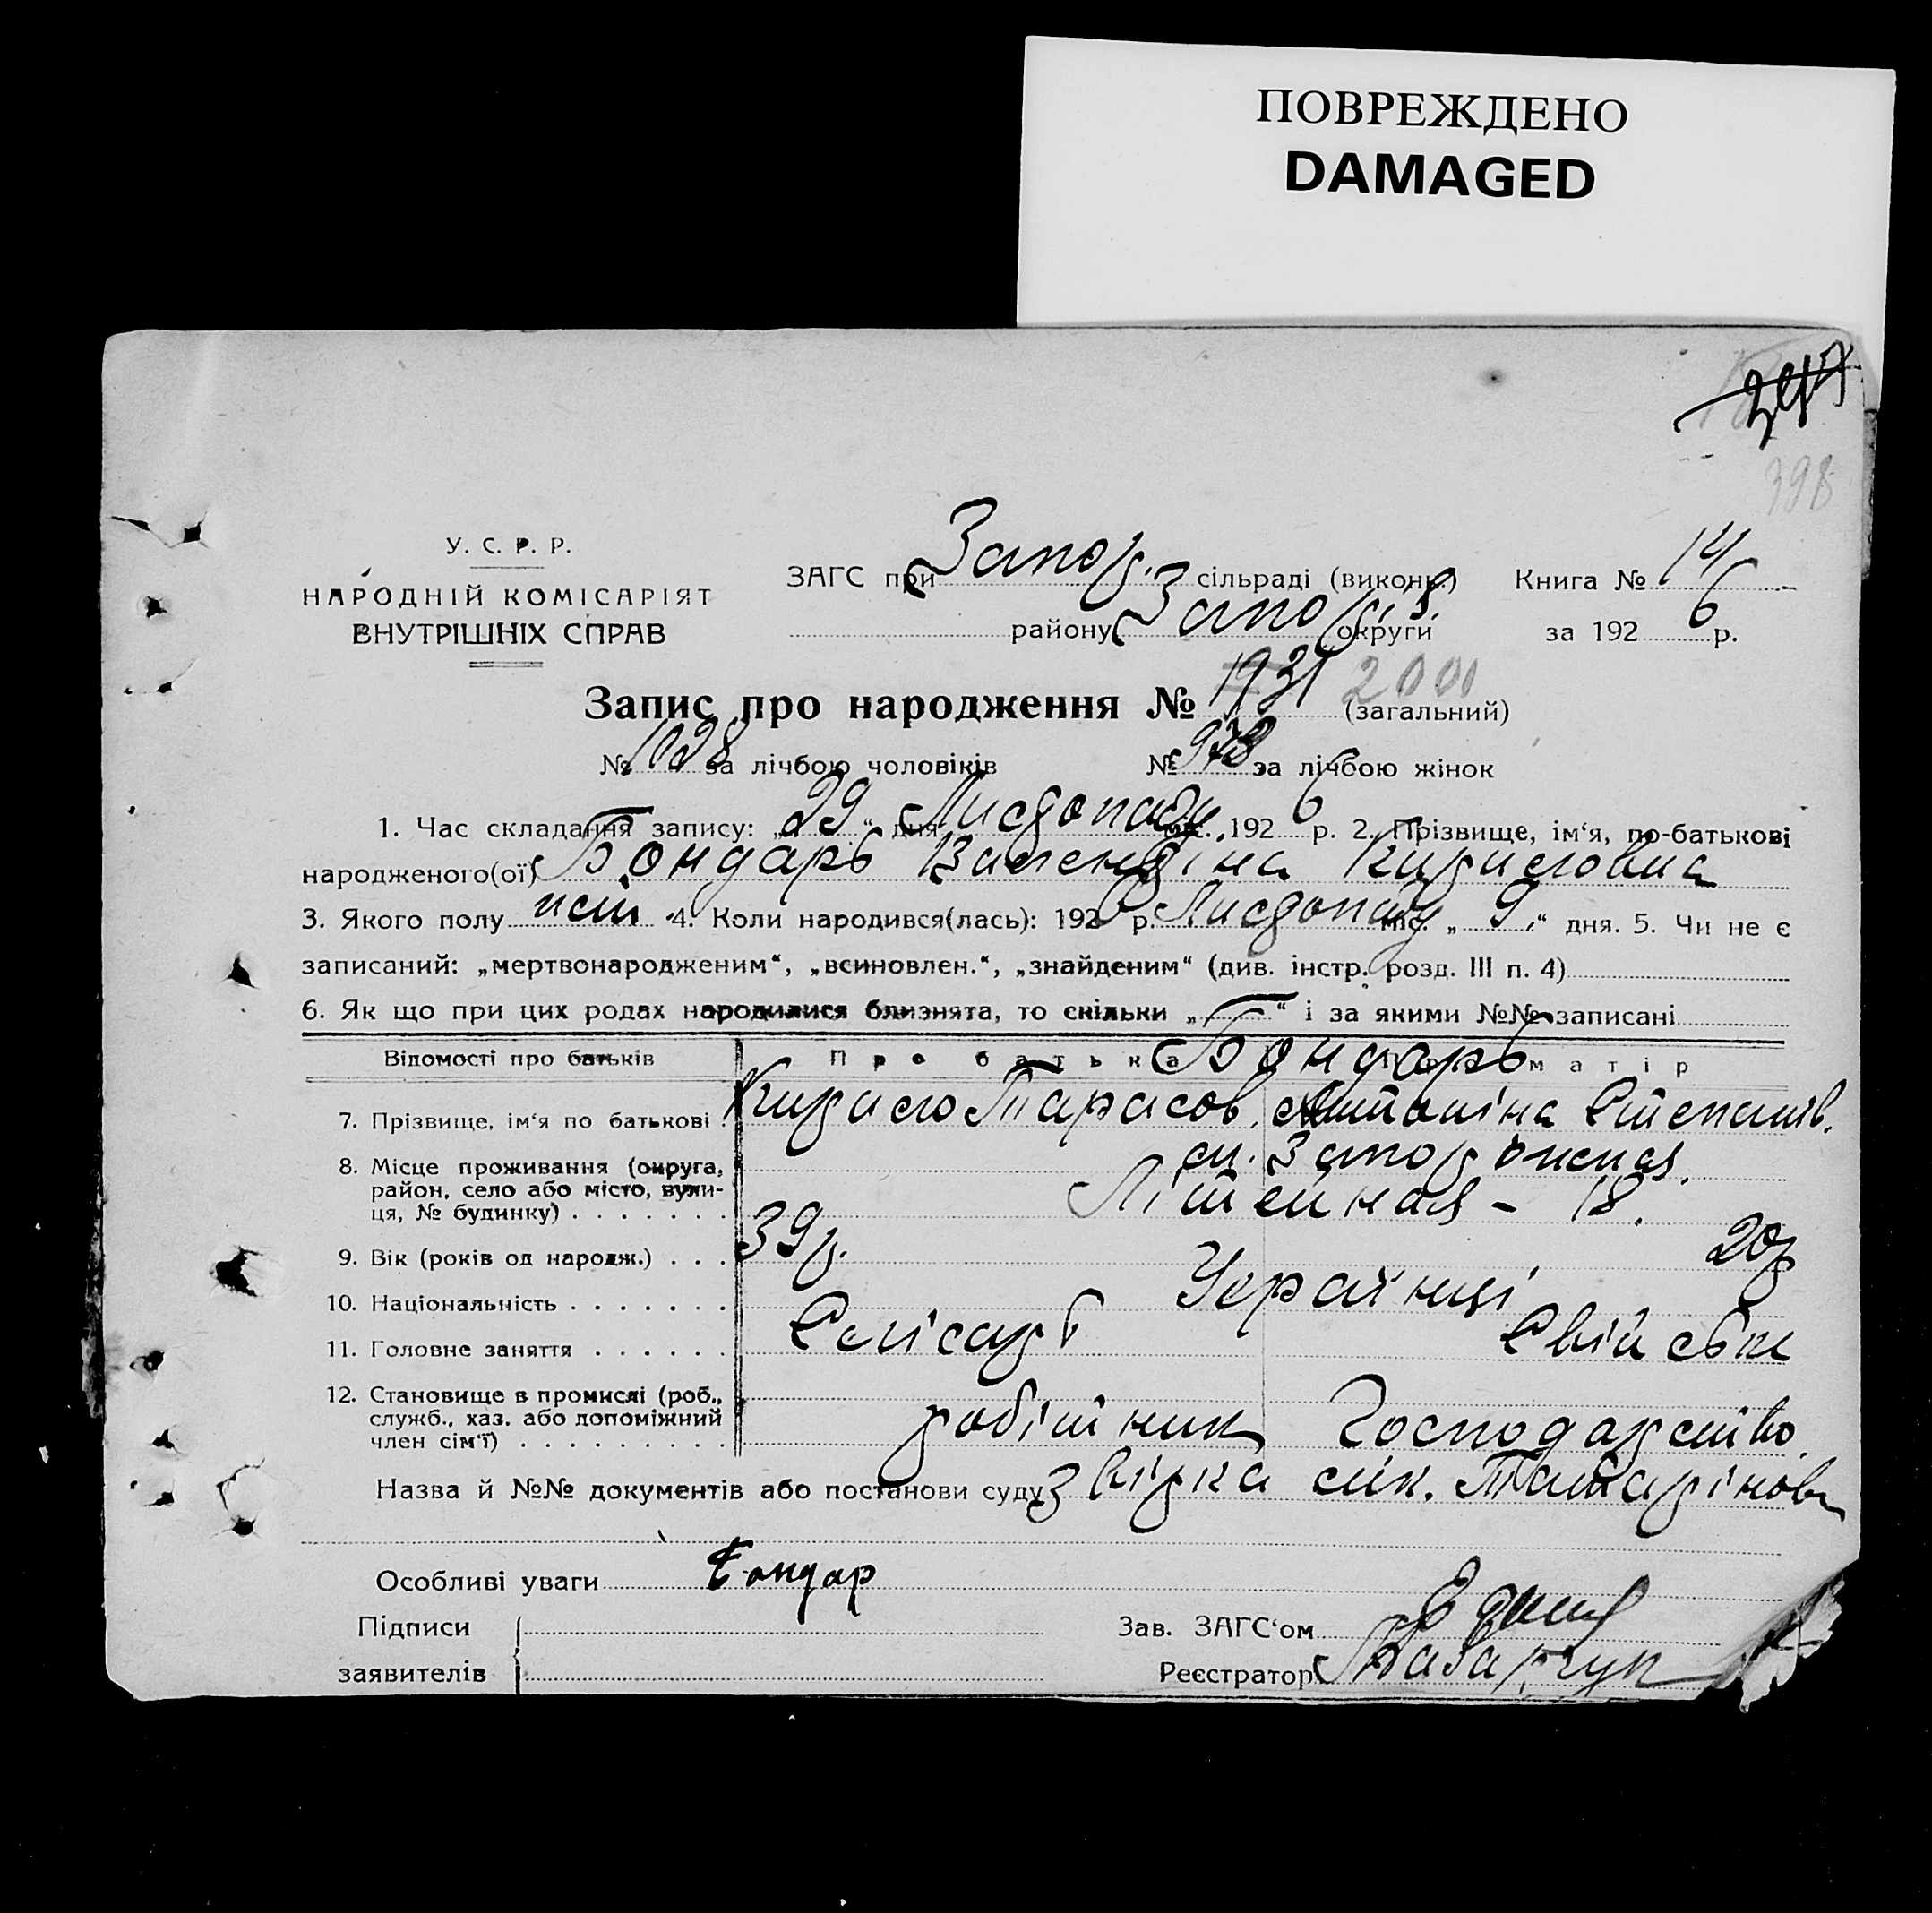 ПОВРЕЖДЕНО
DAMAGED
398
У. С. Р. Р.
НАРОДНІЙ КОМІСАРІЯТ
ВНУТРІШНІХ СПРАВ
ЗАГС при Запор. сільраді (виконк.) Книга № 14
району Запор. округи за 1926 р.
Запис про народження № 1931 2000 (загальний)
№ 1028 за лічбою чоловіків № 973 за лічбою жінок
1. Час складання запису: „29“ дня Листопаду міс. 1926 р. 2. Прізвище, ім'я, по-батькові
народженого(ої) Бондарь Валентіна Кириловна
3. Якого полу жін. 4. Коли народився(лась): 1926 р. Листопаду міс. „9“ дня. 5. Чи не є
записаний: „мертвонародженим“, „всиновлен.“, „знайденим“ (див. інстр. розд. III п. 4)
6. Як що при цих родах народилися близнята, то скільки „ “ і за якими №№ записані
Відомості про батьків Про батька матір
Бондарь
7. Прізвище, ім'я по батькові Кирило Тарасов. Антоніна Степанів.
8. Місце проживання (округа, район, село або місто, вулиця, № будинку) ст. Запоріжжя,
Літейная – 18.
9. Вік (років од народж.) 39 р. 20 р
10. Національність Українці
11. Головне заняття Слісарь Свійське
12. Становище в промислі (роб., служб., хаз. або допоміжний член сім'ї) робітник Господарство.
Назва й №№ документів або постанови суду Звірка Татарінова
Особливі уваги Бондар
Підписи Зав. ЗАГС'ом
заявителів Реєстратор